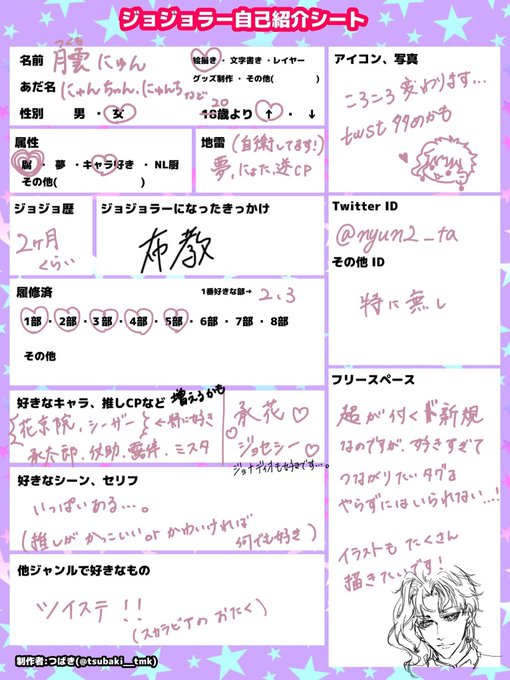 ジョジョラー自己紹介シート
名前 つくも 朧雲 にゅん
絵描き・文字書き・レイヤー
グッズ制作・その他( )
あだ名 にゅんちゃん、にゅんち など
性別 男・女 20 18歳より ↑・↓
属性
腐・夢・キャラ好き・NL厨
その他( )
地雷 (自衛してます!)
夢、にょた、逆CP
アイコン、写真
ころころ変わります…
twst多めかも
ジョジョ歴
2ヶ月
くらい
ジョジョラーになったきっかけ
布教
Twitter ID
@nyun2_ta
その他 ID
特に無し
履修済 1番好きな部→ 2、3
1部・2部・3部・4部・5部・6部・7部・8部
その他
好きなキャラ、推しCPなど 増えるかも
花京院、シーザー ←特に好き
承太郎、仗助、露伴、ミスタ
承花♡
ジョセシー♡
ジョナディオも好きです…。
好きなシーン、セリフ
いっぱいある…。
(推しがかっこいい or かわいければ
何でも好き)
他ジャンルで好きなもの
ツイステ!!
(スカラビアのおたく)
フリースペース
超が付くド新規
なのですが、好きすぎて
つながりたいタグを
やらずにはいられない…!
イラストもたくさん
描きたいです!
制作者:つばき(@tsubaki__tmk)